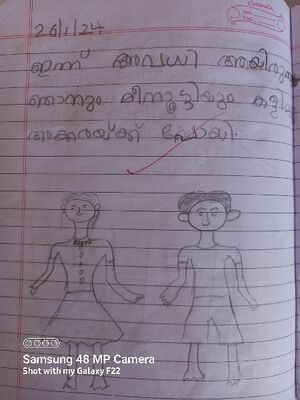 classmate
26/1/24
ഇന്ന് അവധി
ഞാനും മീനൂട്ടിയും
അക്കരയ്ക്ക് പോയി.
Samsung 48 MP Camera
Shot with my Galaxy F22